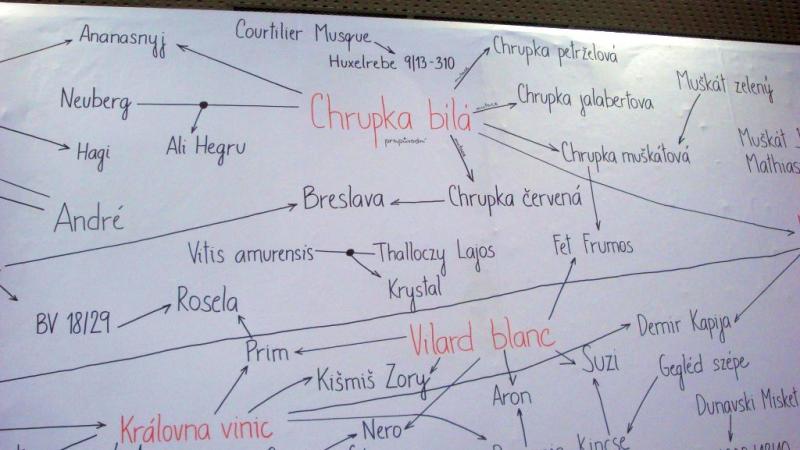 Ananasnyj
Courtilier Musque
Huxelrebe 9/13-310
Chrupka petrželová
Neuberg
Chrupka bílá
Chrupka jalabertova
Muškát zelený
Ali Hegru
Hagi
Chrupka muškátová
Muškát
Mathias
André
Breslava
Chrupka červená
Vitis amurensis
Thalloczy Lajos
Krystal
Fet Frumos
BV 18/29
Rosela
Prim
Vilard blanc
Demir Kapija
Suzi
Gegléd szépe
Kišmiš Zory
Aron
Dunavski Misket
Královna vinic
Nero
Kincse